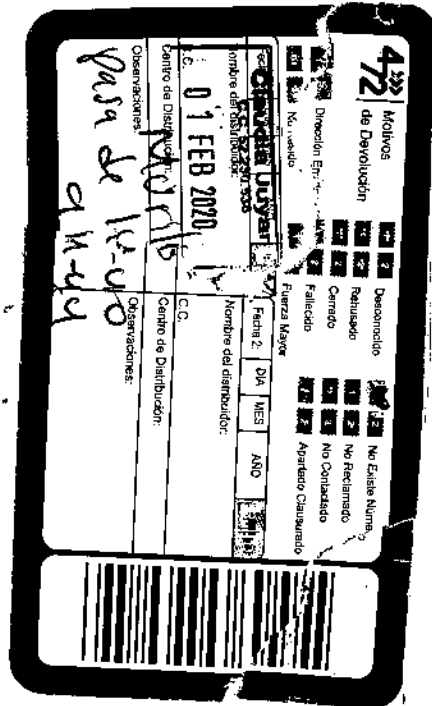 472
Motivos
de Devolución
Desconocido
Rehusado
Cerrado
Fallecido
Fuerza Mayor
No Existe Número
No Reclamado
No Contactado
Apartado Clausurado
Dirección
No
Claudia
C.C.
Nombre del distribuidor:
C.C.
01 FEB 2020
Centro de Distribución:
Murillo
Observaciones:
Pasa de
Fecha 2: DIA MES AÑO
Nombre del distribuidor:
C.C.
Centro de Distribución:
Observaciones: